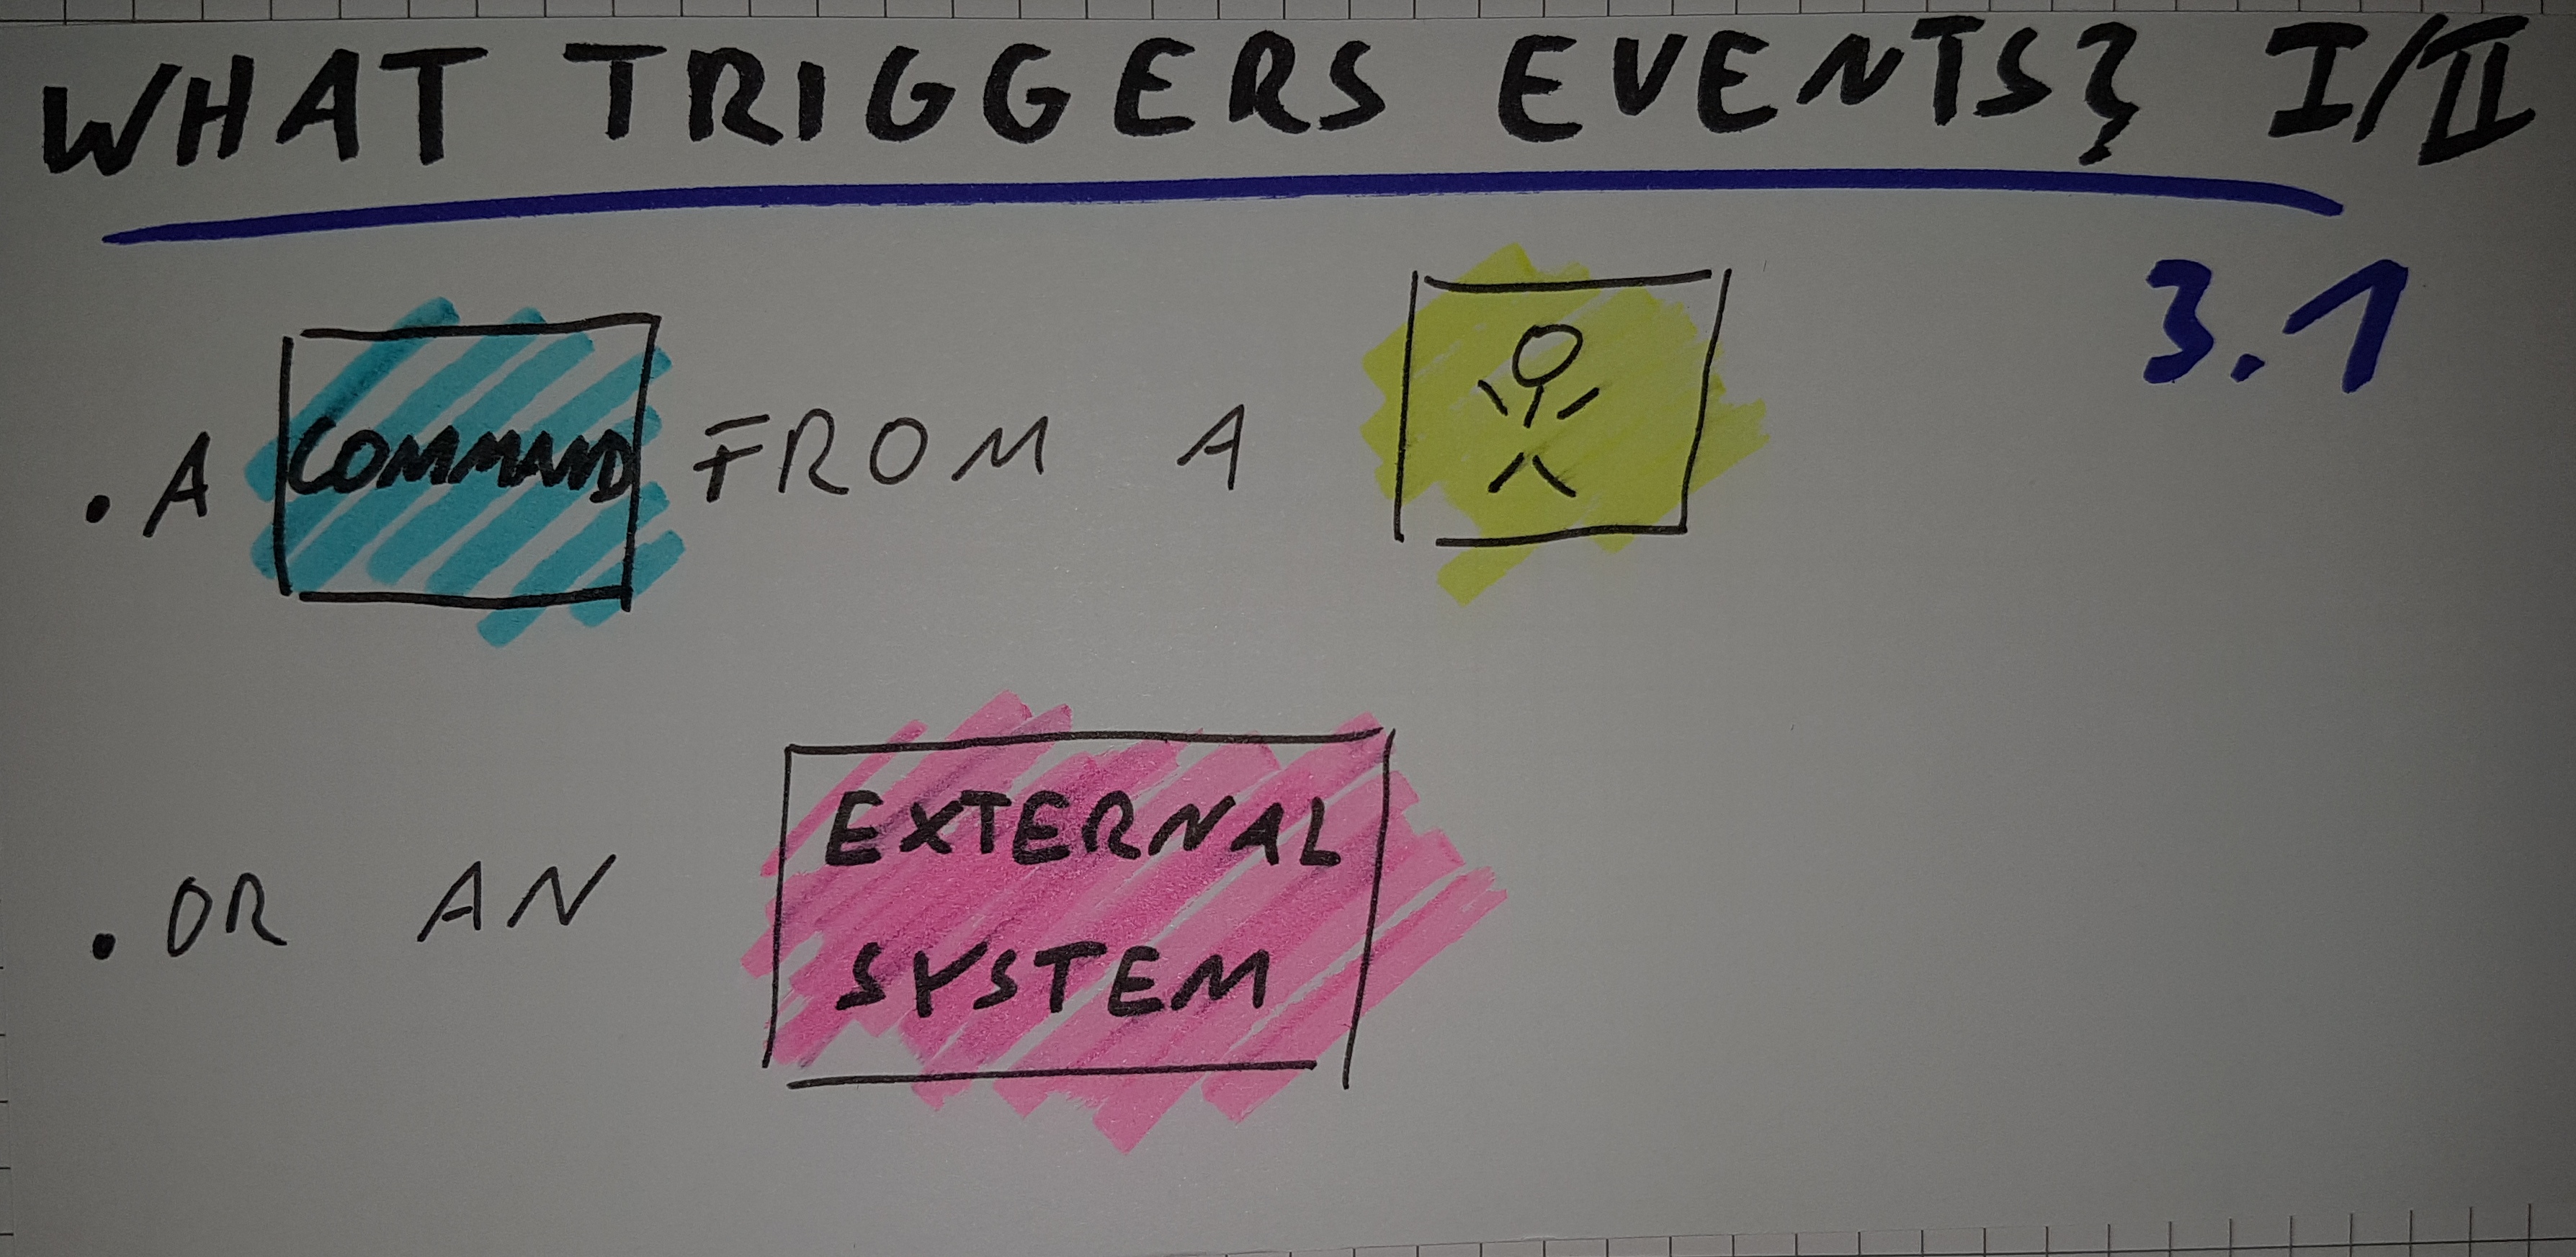 WHAT TRIGGERS EVENTS? I/II
3.1
. A COMMAND FROM A
. OR AN EXTERNAL
SYSTEM